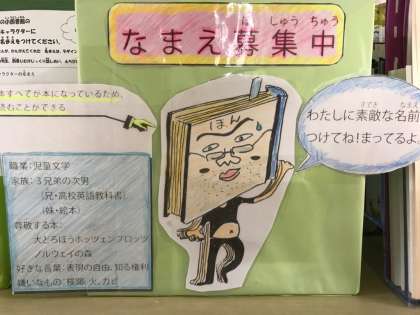 の小部屋館の
キャラクターに
名まえをつけてください。
キャラクターのなまえ
なまえ募集中
ぼ しゅう ちゅう
体すべてが本になっているため、
読むことができる
職業:児童文学
家族:3兄弟の次男
(兄・高校英語教科書)
(妹・絵本)
尊敬する本:
大どろぼうホッツェンプロッツ
ノルウェイの森
好きな言葉:表現の自由、知る権利
嫌いなもの:極端、火、カビ
ほん
すてき なまえ
わたしに素敵な名前
つけてね!まってるよ